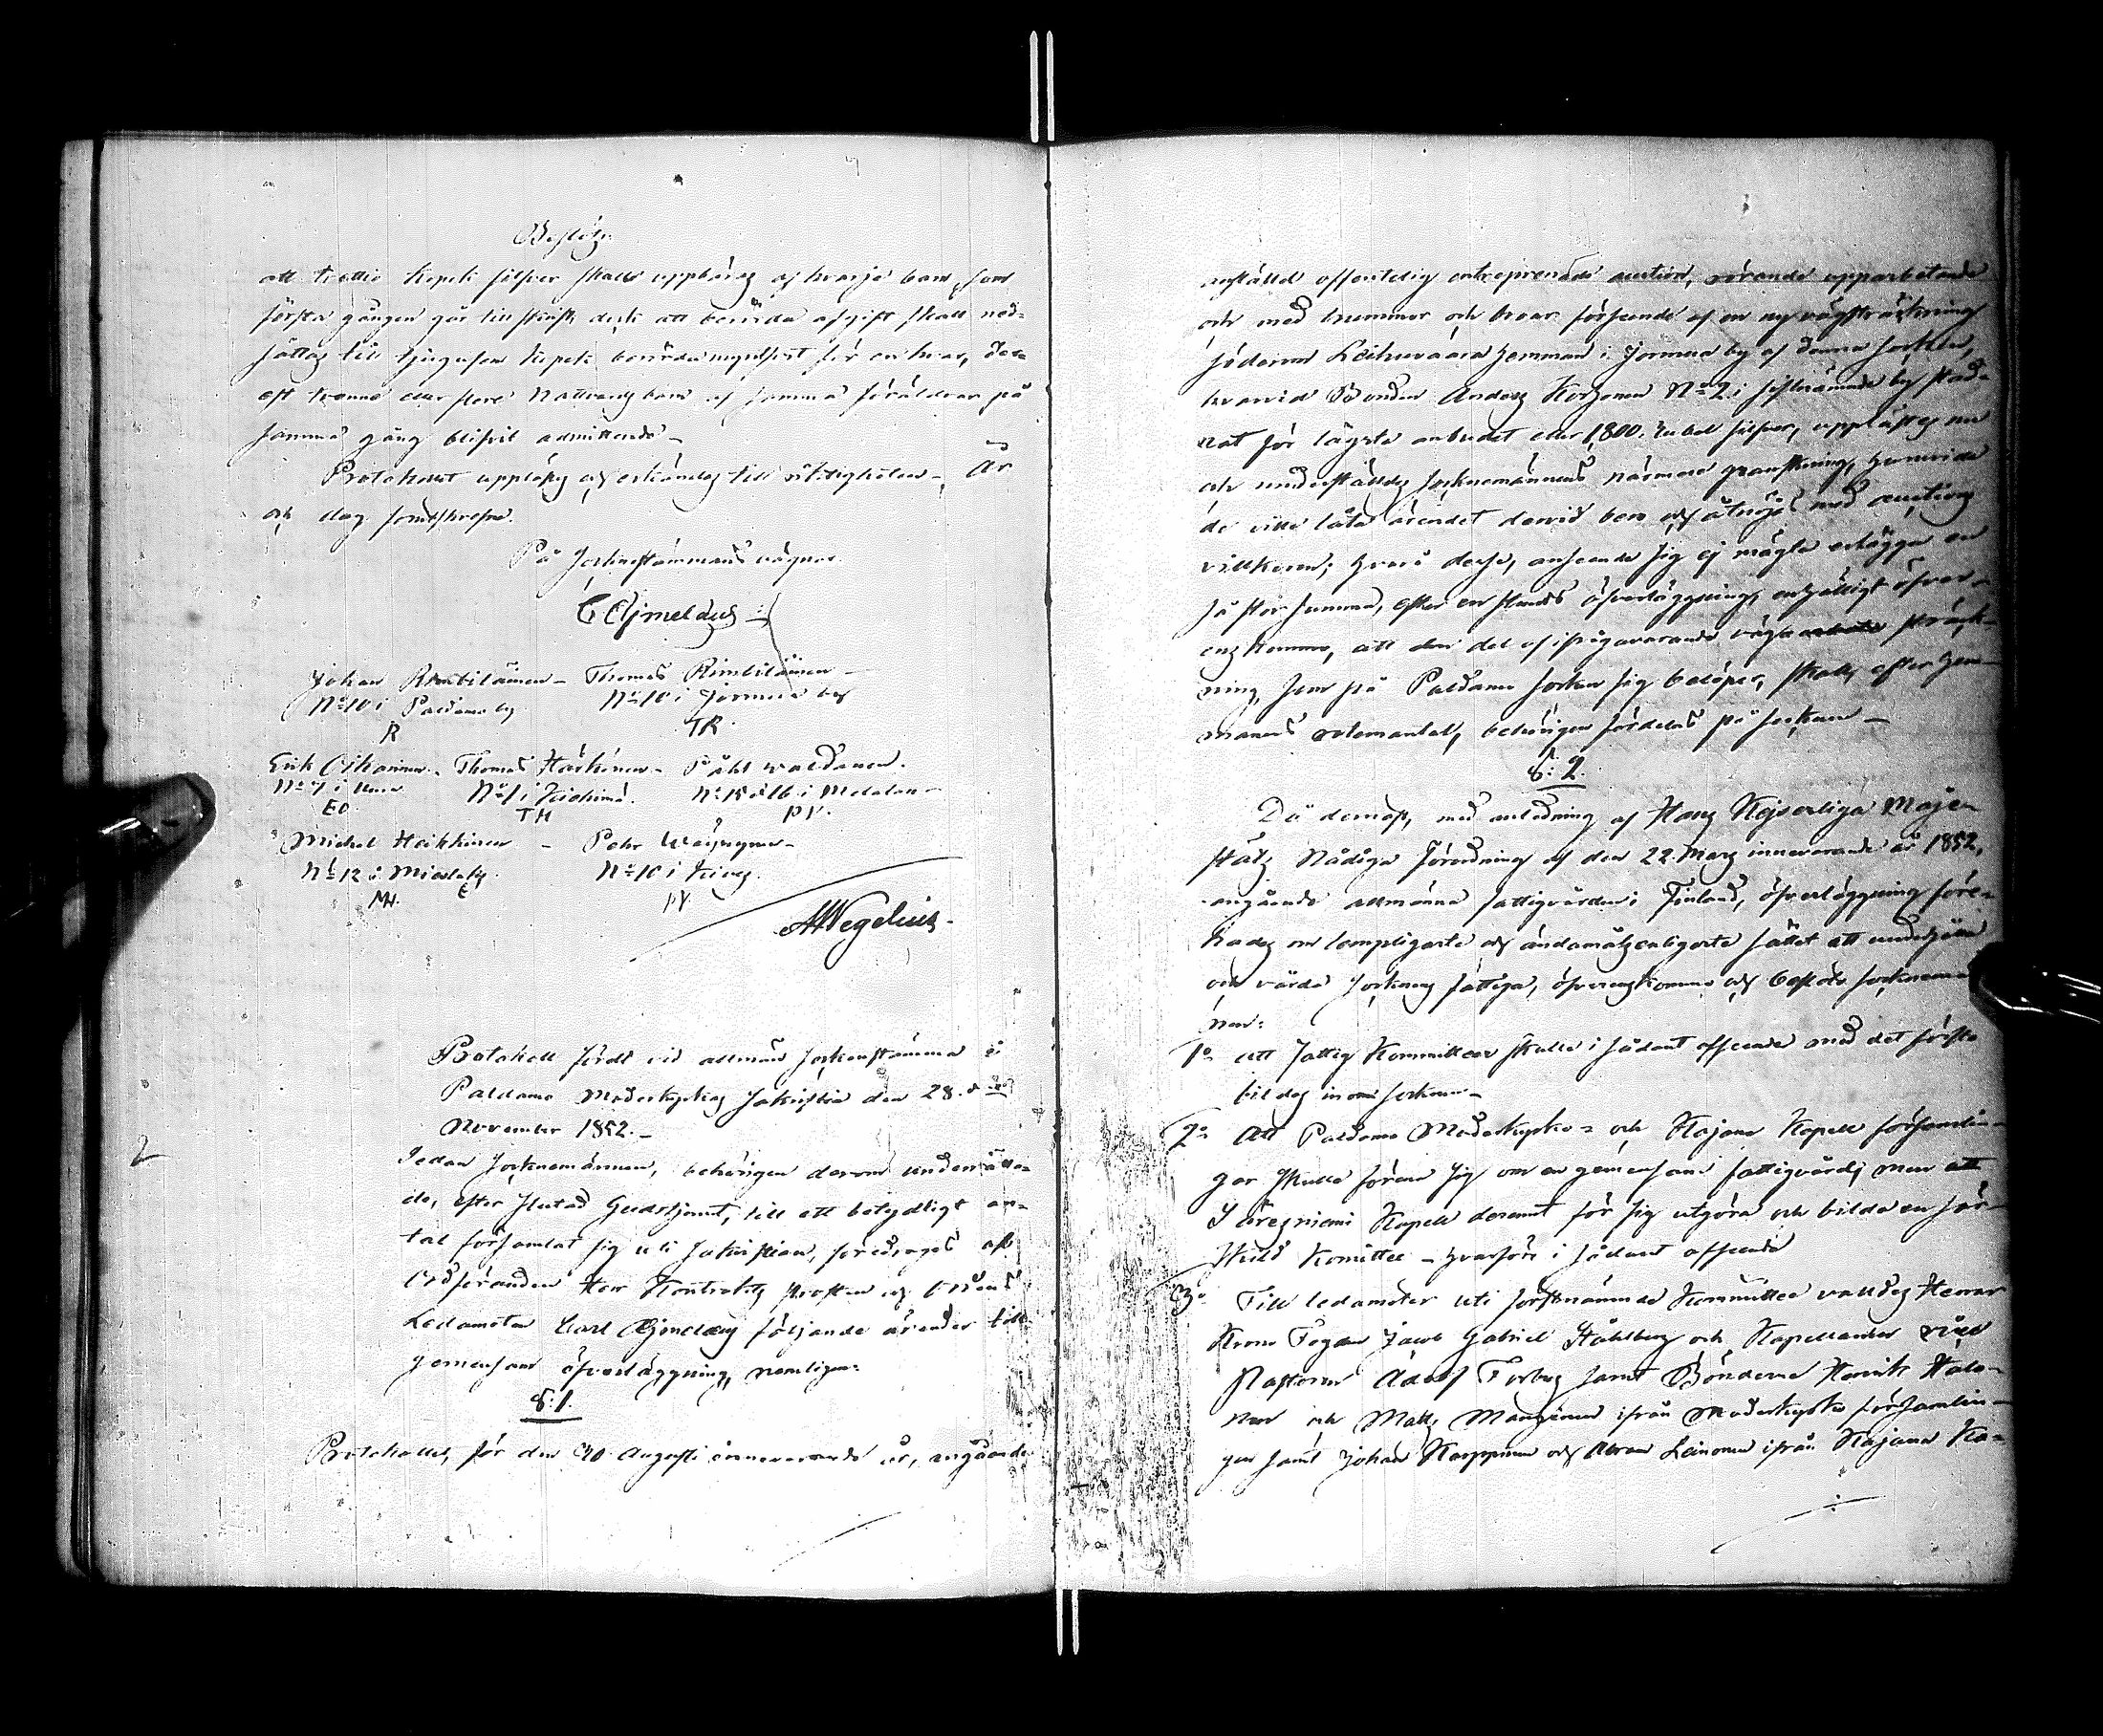 Beslöts:
att trettio kopek silfver skulle uppbäras af hvarje barn, som
första gången går till skrift, dock att berörda afgift skall ned-
sättas till tjugufem kopek berörda myntsort för en hvar, der-
est tvenne eller flere Nattvardsbarn af samma föräldrar på
samma gång blifvit admitterade –
Protokollet upplästes och erkändes till riktigheten – År
och dag somofskrefne.
På Sockenstämmans vägnar
C Ajmelæus
Johan Rimbiläinen – Thomas Rimbiläinen –
No 10 i Paldamo by No 10 i Jormua by
R TR
Erik Oikarinen – Thomas Härkönen – Påhl Waldanen.
No 7 i No 1 i Kiehimä. No 15 & 16 i Melalan
EO TH PV.
Michel Heikkinen – Pehr Wäyrynen –
No 12 i Mieslaby No 10 i
MH PV
AWegelius
Protokoll fördt vid allmän sockenstämma i
Paldamo Moderkyrkas Sakristia den 28.de
November 1852. –
2
Sedan Socknemännen, behörigen derom underrätta-
de, efter slutad Gudstjenst, till ett betydligt an-
tal församlat sig uti Sakristian, föredrogos af
Ordföranden Herr Kontrakts Prosten och Ordens
Ledamoten Carl Ajmelæus följande ärender till
gemensam öfverläggning, nemligen:
§: 1.
Protokollet, för den 30 Augusti innevarande år, angående
anställd offentelig entreprenade auction, rörande upparbetande
och med trummor och broar förseende af en ny vägsträckning
söderom Leihuvaara hemman i Jormua by af denna socken,
hvarvid Bonden Anders Korhonen No 2 i sistnämnde by stad-
nat för lägsta anbudet eller 1,800. Rubel silfver, upplästes nu
och underställdes Socknemännens närmare granskning, huruvida
de ville låta ärendet dervid bero och åtnöjas med auctions
villkoren; hvarå desse, anseende sig ej mägta erlägga en
så stor summa, efter en stunds öfverläggning, enhälligt öfver-
enskommo, att den del af ifrågavarande väg sträck-
ning, som på Paldamo Socken sig belöper, skall, efter hem-
manens oförmedlade mantal, behörigen fördelas på Socknen –
§: 2.
Då dernäst, med anledning af Hans Kejserliga Maje-
stäts Nådiga Förordning af den 22 Mars innevarande år 1852,
angående allmänna fattigvården i Finland, öfverläggning före-
hades om lämpligaste och ändamålsenligaste sättet att underhålla
och vårda Socknens fattiga, öfverenskommo och beslöto Socknemän-
nen:
1o Att Fattig Kommittéer skulle i sådant afseende med det första
bildas inom Socknen –
2o Att Paldamo Moderkyrko- och Kajana Kapell församlin-
gar skulle förena sig om en gemensam fattigvård, men att
Säresniemi Kapell deremot för sig utgöra och bilda en sär-
skild Komitté – hvarföre i sådant afseende
3o Till ledamöter uti förstnämnde Kommitté valdes Herrar
Krono Fogden Jacob Gabriel Ståhlberg och Kapellanen vice
Pastoren Adolf Forbus samt Bönderne Henrik Halo-
nen och Matts Manninen ifrån Moderkyrko församlin-
gen samt Johan Karppinen och Abram Leinonen ifrån Kajana Ka-